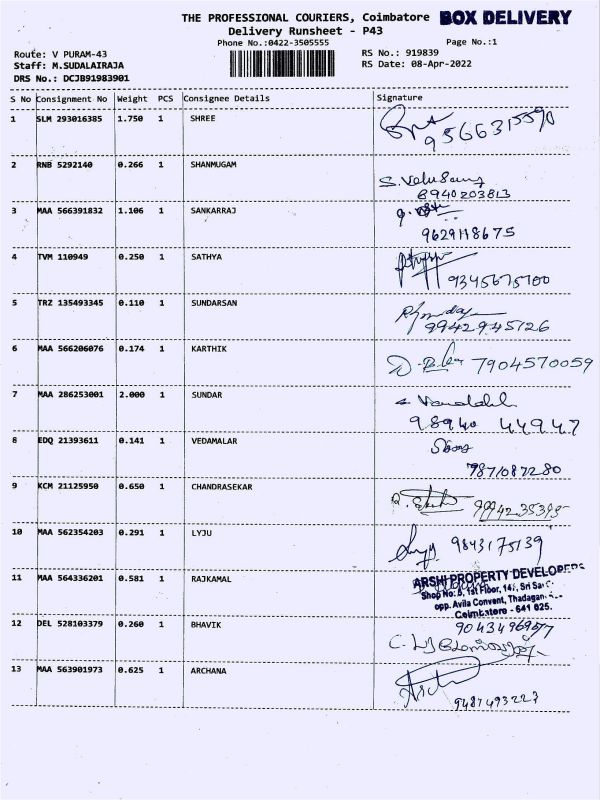 THE PROFESSIONAL COURIERS, Coimbatore BOX DELIVERY
Delivery Runsheet - P43
Phone No.:0422-3505555 Page No.:1
Route: V PURAM-43 RS No.: 919839
Staff: M.SUDALAIRAJA RS Date: 08-Apr-2022
DRS No.: DCJB91983901
S No Consignment No Weight PCS Consignee Details Signature
1 SLM 293016385 1.750 1 SHREE
9566315590
2 RNB 5292140 0.266 1 SHANMUGAM
S. Velusamy
8940203813
3 MAA 566391832 1.106 1 SANKARRAJ
9629118675
4 TVM 110949 0.250 1 SATHYA
9345675100
5 TRZ 135493345 0.110 1 SUNDARSAN
9942945126
6 MAA 566206076 0.174 1 KARTHIK
7904570059
7 MAA 286253001 2.000 1 SUNDAR
98940 44947
8 EDQ 21393611 0.141 1 VEDAMALAR
9871087280
9 KCM 21125950 0.650 1 CHANDRASEKAR
9994235395
10 MAA 562354203 0.291 1 LYJU
9843175139
11 MAA 564336201 0.581 1 RAJKAMAL
ARSHI PROPERTY DEVELOPERS
Shop No: 5, 1st Floor, 14, Sri Sai
opp. Avila Convent, Thadagam
Coimbatore - 641 025.
12 DEL 528103379 0.260 1 BHAVIK
13 MAA 563901973 0.625 1 ARCHANA
9487493223